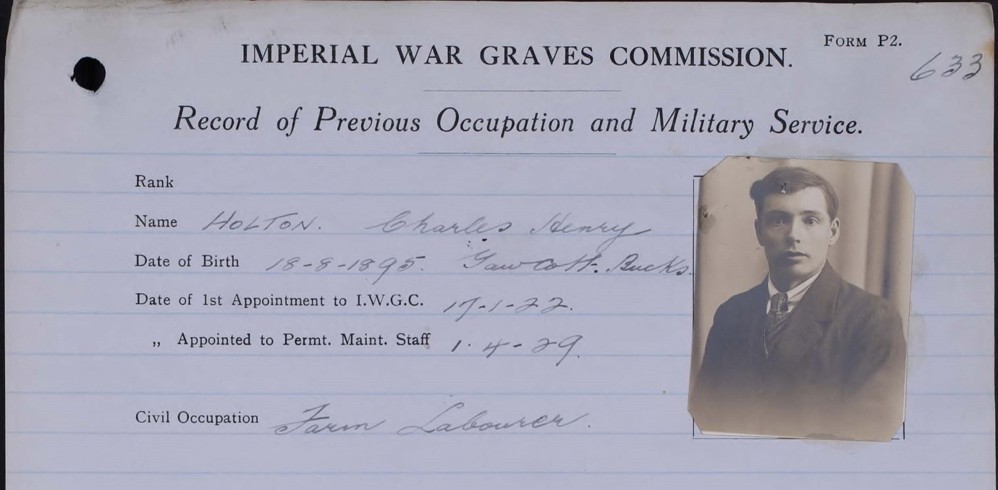 FORM P2.
633
IMPERIAL WAR GRAVES COMMISSION.
Record of Previous Occupation and Military Service.
Rank
Name HOLTON. Charles Henry
Date of Birth 18-8-1895. Gawcott. Bucks.
Date of 1st Appointment to I.W.G.C. 17-1-22.
„ Appointed to Permt. Maint. Staff 1·4-29.
Civil Occupation Farm Labourer.